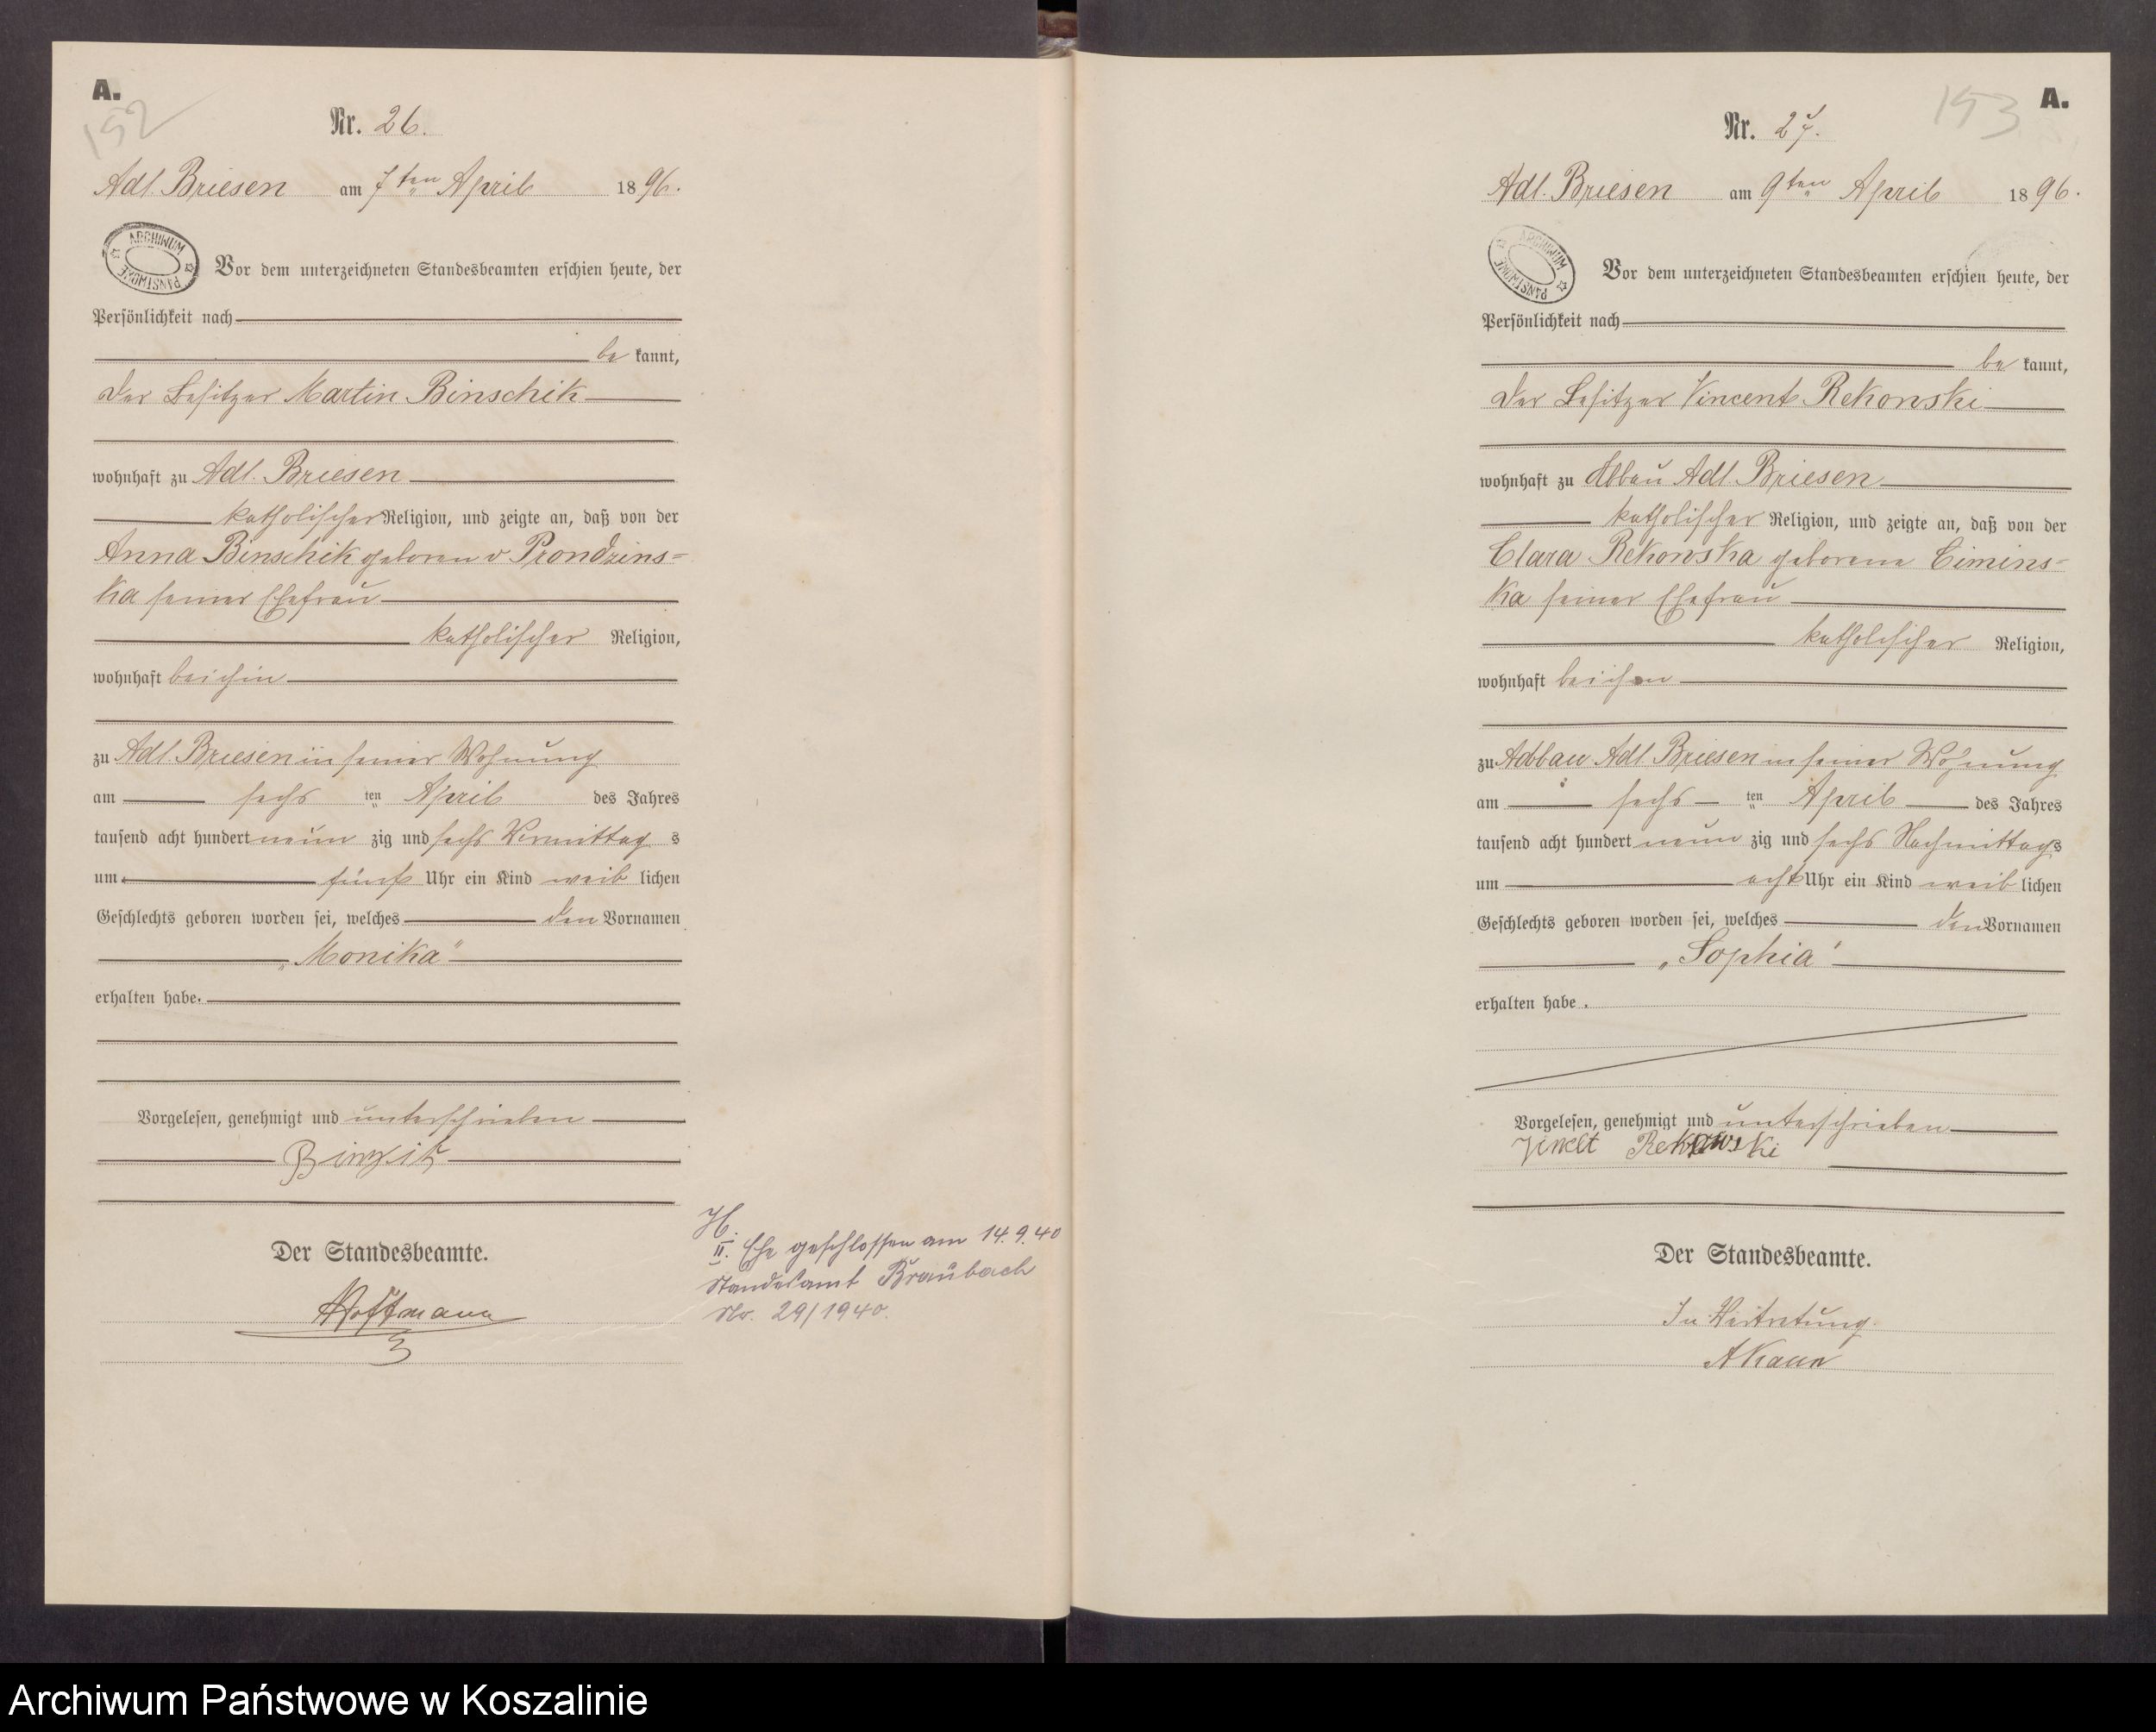 A.
152
Nr. 26.
Adl. Briesen am 7ten April 1896.
ARCHIWUM PAŃSTWOWE
Vor dem unterzeichneten Standesbeamten erschien heute, der
Persönlichkeit nach
be kannt,
der Besitzer Martin Binschik
wohnhaft zu Adl. Briesen
katholischer Religion, und zeigte an, daß von der
Anna Binschik geboren v Prondzins=
ka seiner Ehefrau
katholischer Religion,
wohnhaft bei ihm
zu Adl. Briesen in seiner Wohnung
am sechs ten April des Jahres
tausend acht hundert neun zig und sechs Vormittag s
um fünf Uhr ein Kind weib lichen
Geschlechts geboren worden sei, welches den Vornamen
„Monika“
erhalten habe.
Vorgelesen, genehmigt und unterschrieben
Der Standesbeamte.
Hoffmann
H.
II. Ehe geschlossen am 14.9.40
Standesamt Braubach
No. 29/1940.
A.
153
Nr. 27.
Adl. Briesen am 9ten April 1896.
ARCHIWUM PAŃSTWOWE
Vor dem unterzeichneten Standesbeamten erschien heute, der
Persönlichkeit nach
be kannt,
der Besitzer Vincent Rekowski
wohnhaft zu Abbau Adl. Briesen
katholischer Religion, und zeigte an, daß von der
Clara Rekowska geborene Cimins=
ka seiner Ehefrau
katholischer Religion,
wohnhaft bei ihm
zu Adbau Adl. Briesen in seiner Wohnung
am sechs ten April des Jahres
tausend acht hundert neun zig und sechs Nachmittags
um acht Uhr ein Kind weib lichen
Geschlechts geboren worden sei, welches den Vornamen
„Sophia“
erhalten habe.
Vorgelesen, genehmigt und unterschrieben
Rekowski
Der Standesbeamte.
In Vertretung.
Archiwum Państwowe w Koszalinie